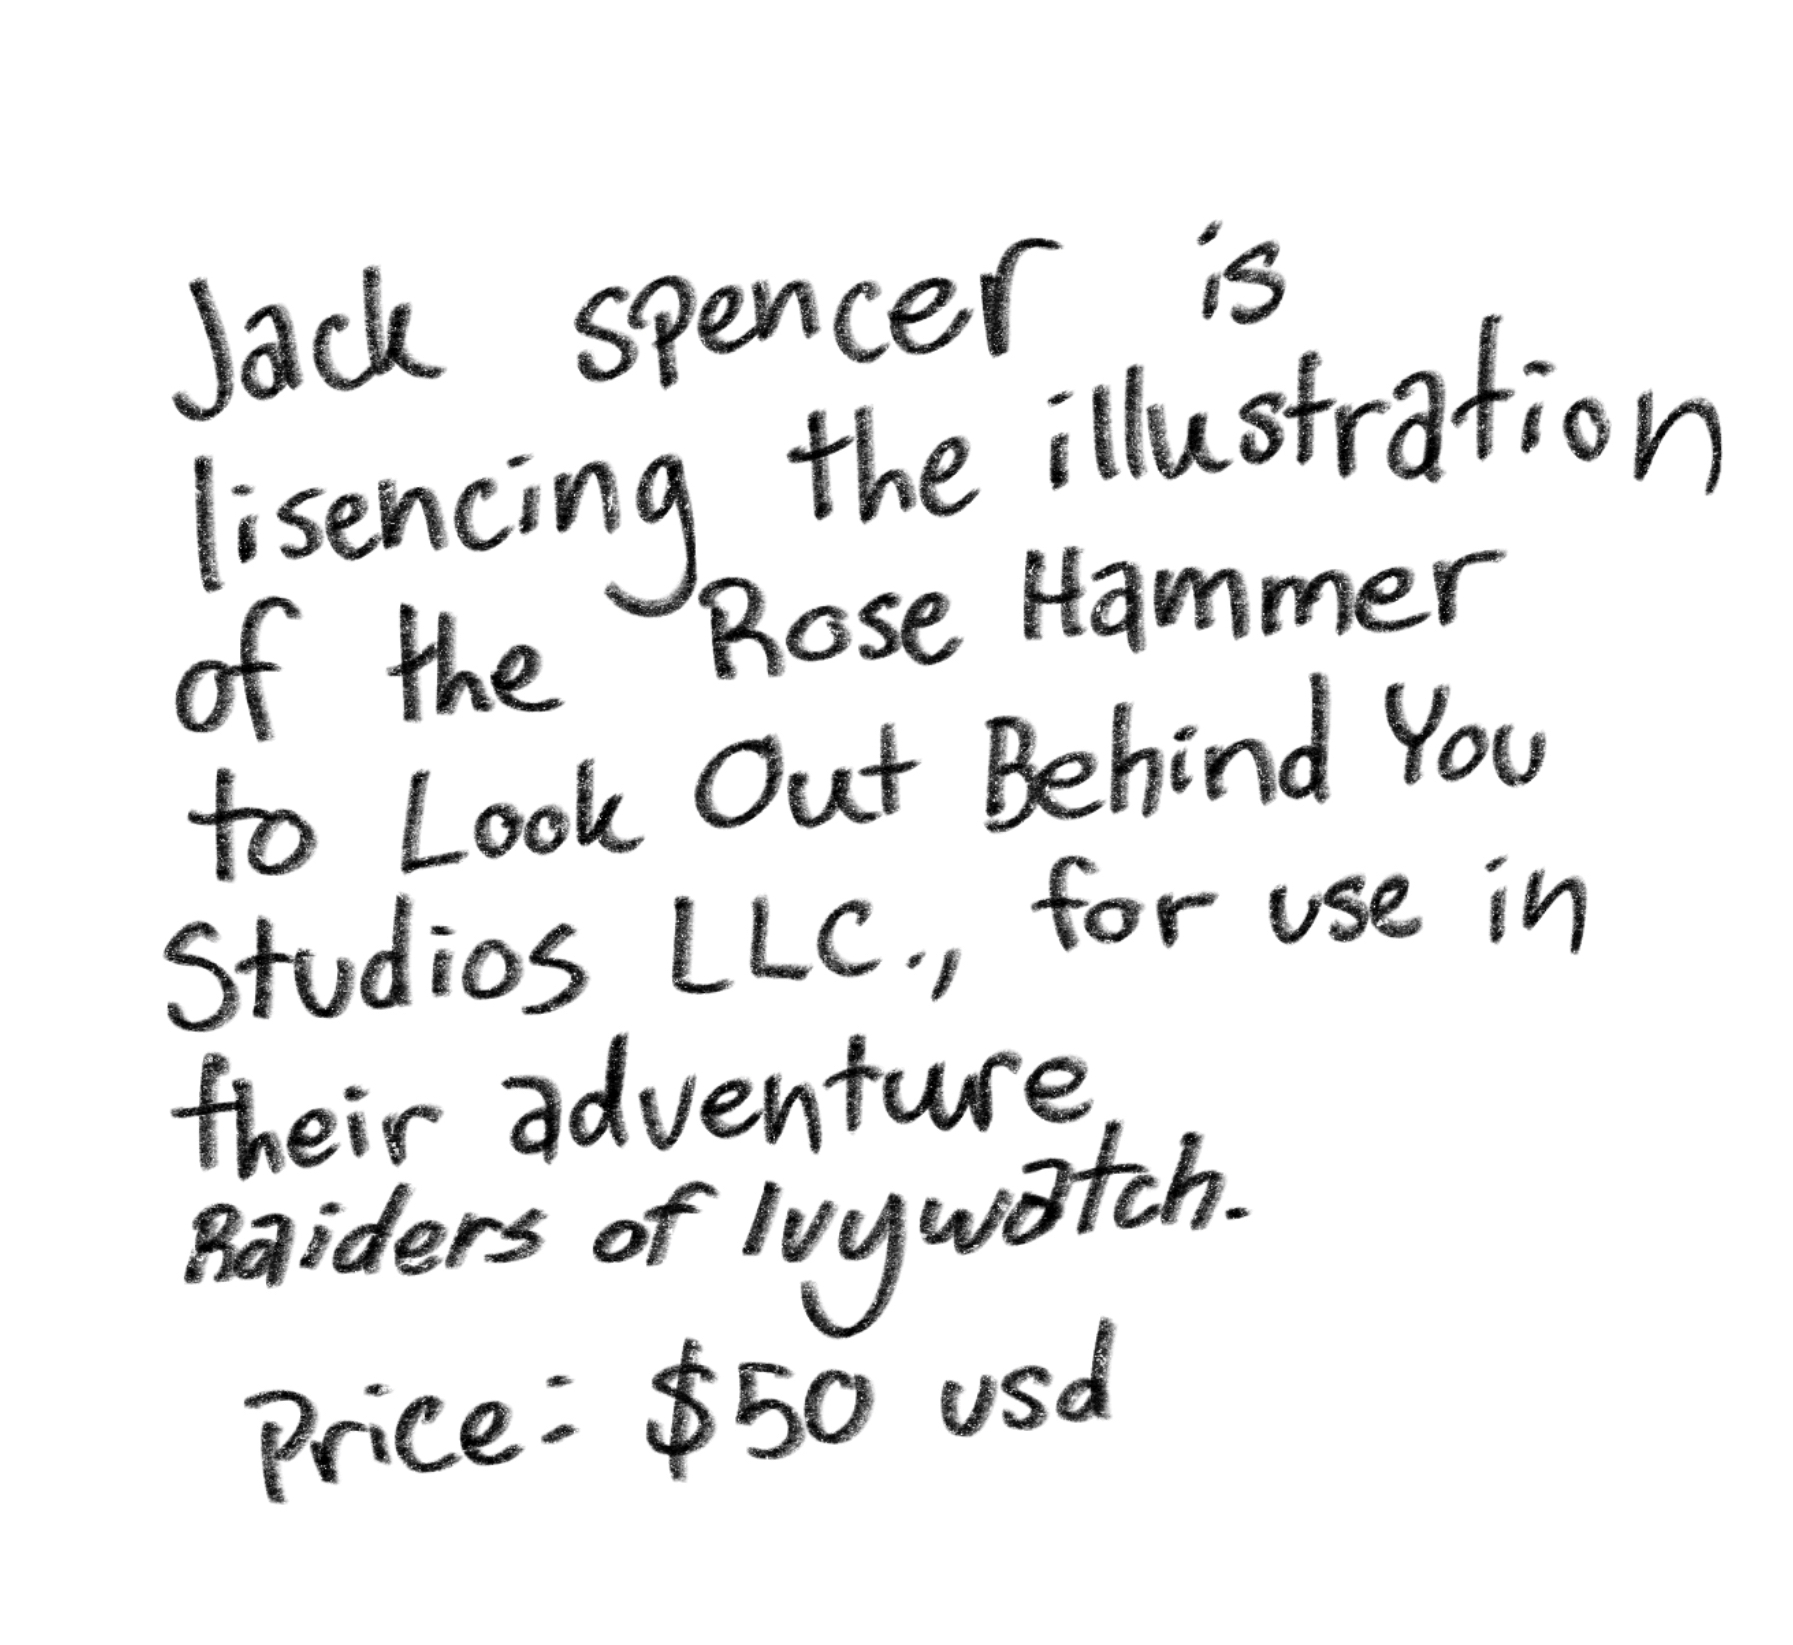 Jack spencer is
lisencing the illustration
of the Rose Hammer
to Look Out Behind You
Studios LLC., for use in
their adventure
Raiders of Ivywatch.
Price: $50 usd